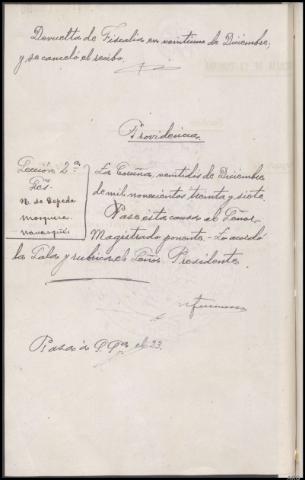 Devuelta de Fiscalia en veintiuno de Diciembre,
y se canceló el recibo.
Providencia
Sección 2ª
Sres.
N. de Cepeda
Mosquera
Navarque
La Coruña, veintidos de Diciembre
de mil novecientos treinta y siete.
Pase esta causa al Señor
Magistrado ponente - Lo acordó
la Sala y rubrica el Señor Presidente.
Pasa á el 23.